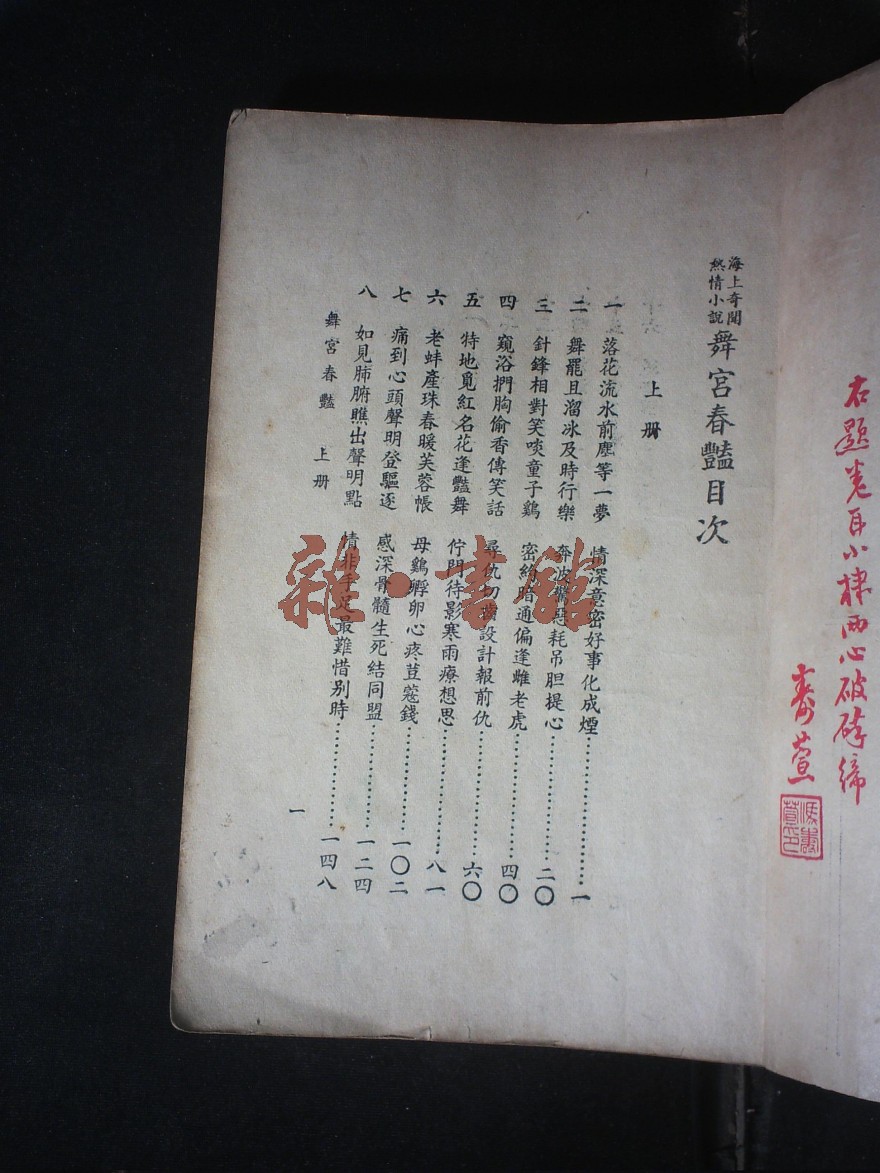 右題卷耳小棣西心破碎緣
海上奇聞
熱情小說
舞宮春豔目次
上册
一 落花流水前塵等一夢 情深意密好事化成煙…………一
二 舞罷且溜冰及時行樂 奔波驚惡耗吊胆提心…………二〇
三 針鋒相對笑啖童子鷄 密約暗通偏逢雌老虎…………四〇
四 窺浴捫胸偷香傳笑話 尋仇切齒設計報前仇…………六〇
五 特地覓紅名花逢豔舞 佇門待影寒雨療想思…………八一
六 老蚌產珠春暖芙蓉帳 母鷄孵卵心疼荳蔻錢…………一〇二
七 痛到心頭聲明登驅逐 感深骨髓生死結同盟…………一二四
八 如見肺腑瞧出聲明點 情非手足最難惜別時…………一四八
舞宮春豔 上册
一
雜·書館